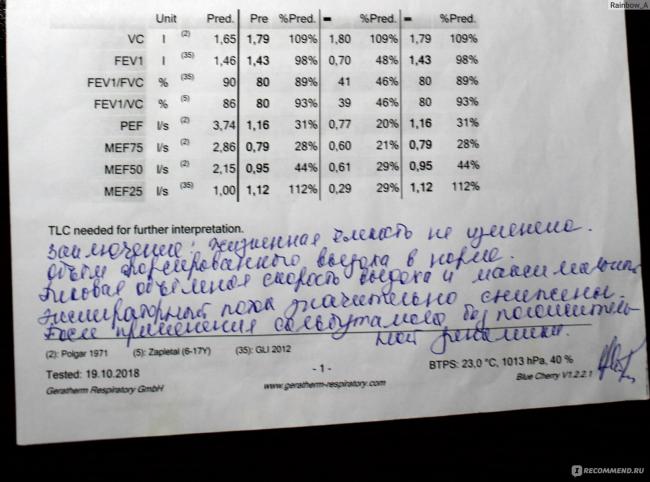 Rainbow_A
Unit Pred. Pre %Pred. - %Pred. - %Pred.
VC l (2) 1,65 1,79 109% 1,80 109% 1,79 109%
FEV1 l (35) 1,46 1,43 98% 0,70 48% 1,43 98%
FEV1/FVC % (35) 90 80 89% 41 46% 80 89%
FEV1/VC % (5) 86 80 93% 39 46% 80 93%
PEF l/s (2) 3,74 1,16 31% 0,77 20% 1,16 31%
MEF75 l/s (2) 2,86 0,79 28% 0,60 21% 0,79 28%
MEF50 l/s (2) 2,15 0,95 44% 0,61 29% 0,95 44%
MEF25 l/s (35) 1,00 1,12 112% 0,29 29% 1,12 112%
TLC needed for further interpretation.
Заключение: жизненная ёмкость не изменена.
Объем форсированного выдоха в норме.
Пиковая объёмная скорость выдоха и максимальный
экспираторный поток значительно снижены.
После применения сальбутамола без положитель-
ной динамики.
(2): Polgar 1971 (5): Zapletal (6-17Y) (35): GLI 2012
Tested: 19.10.2018 - 1 - BTPS: 23,0 °C, 1013 hPa, 40 %
Geratherm Respiratory GmbH www.geratherm-respiratory.com Blue Cherry V1.2.2.1
IRECOMMEND.RU